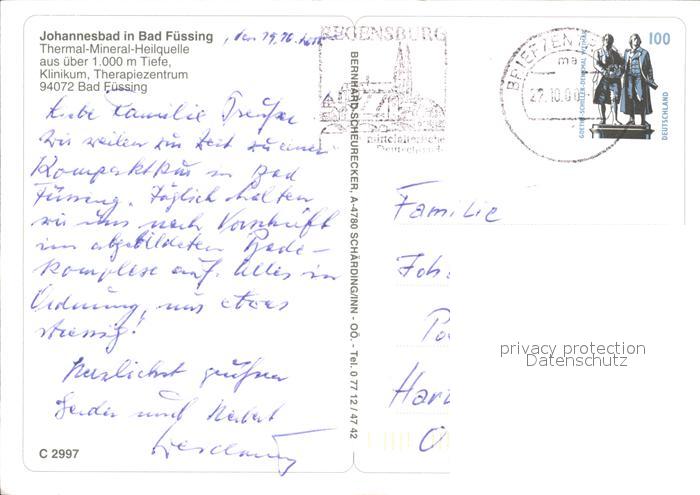 Johannesbad in Bad Füssing
Thermal-Mineral-Heilquelle
aus über 1.000 m Tiefe,
Klinikum, Therapiezentrum
94072 Bad Füssing
, den 19.10.
Liebe Familie
wir weilen zur Zeit zu einer
Kompaktkur in Bad
Füssing. Täglich halten
wir uns nach Vorschrift
im abgebildeten Bade-
komplexe auf. Alles in
Ordnung, nur etwas
stressig!
Herzlichst grüßen
und Herbert
C 2997
BERNHARD SCHEURECKER, A-4780 SCHÄRDING/INN - OÖ. - Tel. 0 77 12 / 47 42
REGENSBURG
mittelalterliche
BRIEFZEN
ma
22.10.00
100
GOETHE-SCHILLER-DENKMAL WEIMAR
DEUTSCHLAND
Familie
Joh
Po
Har
O
privacy protection
Datenschutz